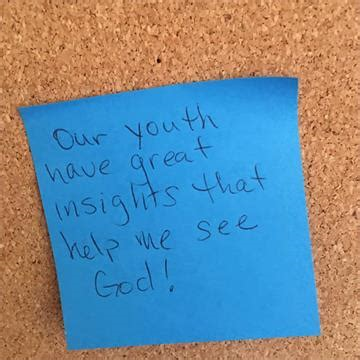 Our youth
have great
insights that
help me see
God!